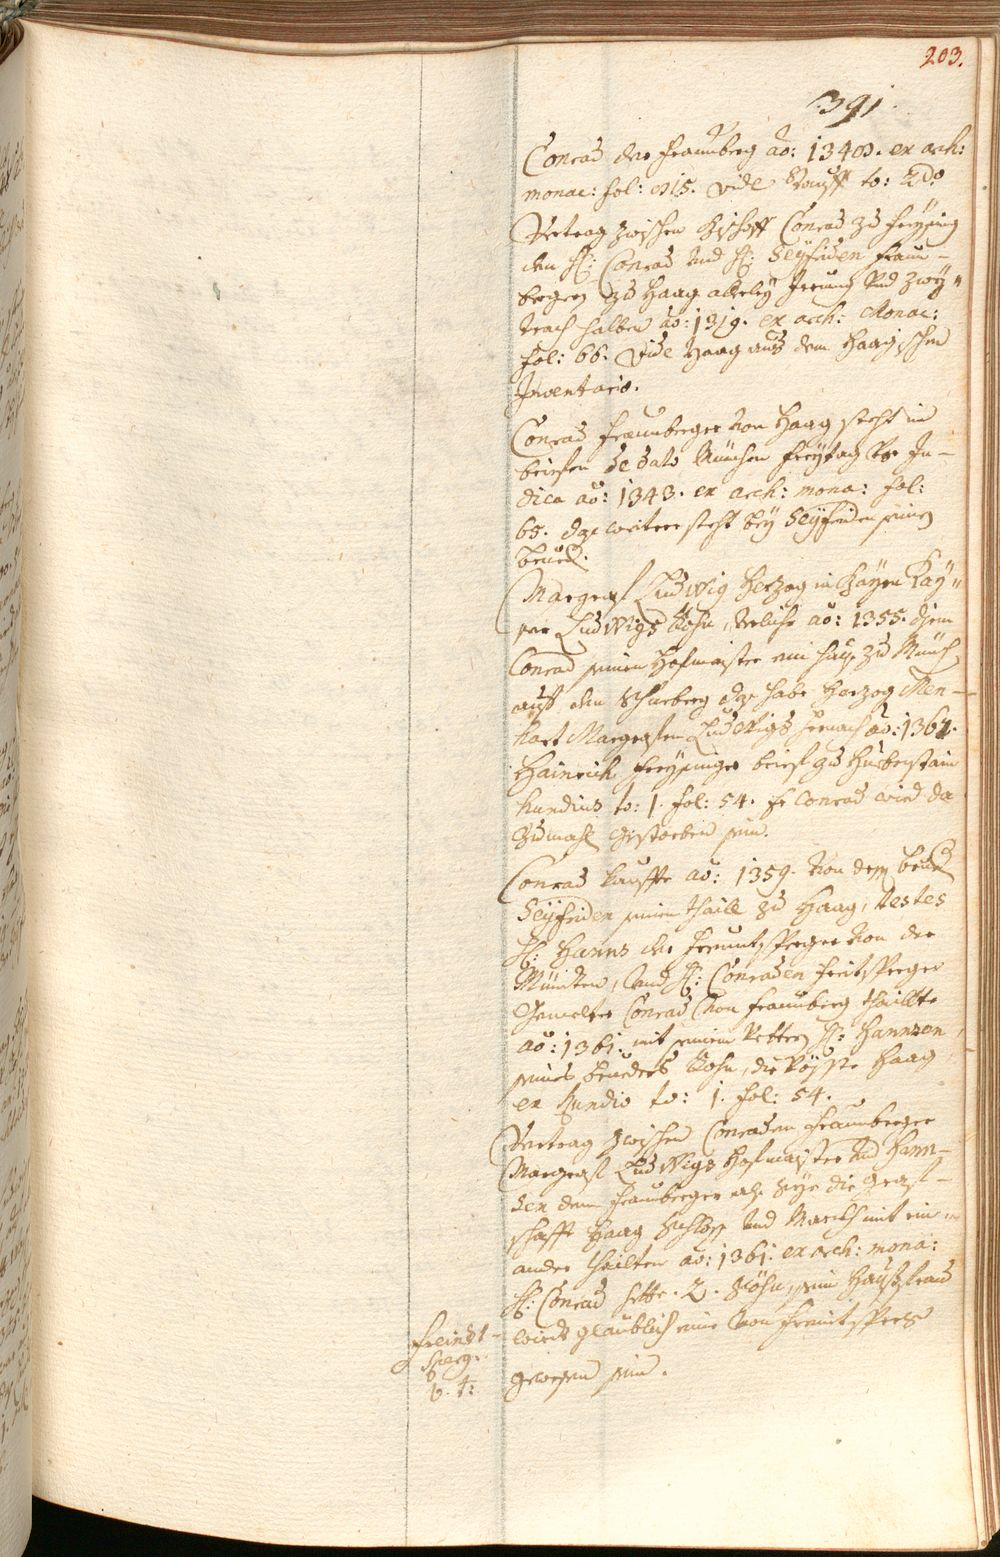 203.
391.
Conrad der Fraunberg ao: 1340. ex arch:
monac: fol: 515. vide Stauff to: 2do
Vertrag zwischen Bischoff Conrad zu Freysing
den H: Conrad und H: Seyfriden Fraun-
bergern zu Haag allerley Irrung und Zwey-
tracht halben ao: 1319. ex arch: Monac:
fol: 66. vide Haag auß dem Haagischen
Inventario.
Conrad Fraunberger von Haag steht in
briefen de dato München Freytag vor Ju-
dica ao: 1343. ex arch: mona: fol:
65. daß weitere steht bey Seyfriden seinen
brued.
Margraf Ludwig Herzog in Bayrn Kay-
ser Ludwigs Sohn, verliche ao: 1355. disem
Conrad seinem Hofmaister ein hauß zu Münch
auff dem daß habe Herzog Men-
hart Margrafen Ludwigs hernach ao: 1362.
Hainrich Freysinger brief zu Hueberstain
hundius to: 1. fol: 54. Hr Conrad wird da
zumahl gestorben sein.
Conrad kauffte ao: 1359. von dem brued
Seyfriden seinen thaill zu Haag, testes
H: Hanns der Freuntsperger von der
München, und H: Conraden Freitsperger
Gemelter Conrad von Fraunberg thaillte
ao: 1361. mit seinem Vettern H: Hannsen
seines bruedern Sohn, die Haag
ex Hundio to: 1. fol: 54.
Vertrag zwischen Conraden Fraunberger
Margraf Ludwigs Hofmaister und Hann-
sen dem Fraunberger alß Sye die Graf-
schafft Haag Schloß und Marckh mit ein-
ander theilten ao: 1361. ex arch: mona:
H: Conrad hette 2. Söhn, sein Haußfrau
wirdt glaublich eine von Freintsperg
gewesen sein.
Freindt-
sperg.
v. t: